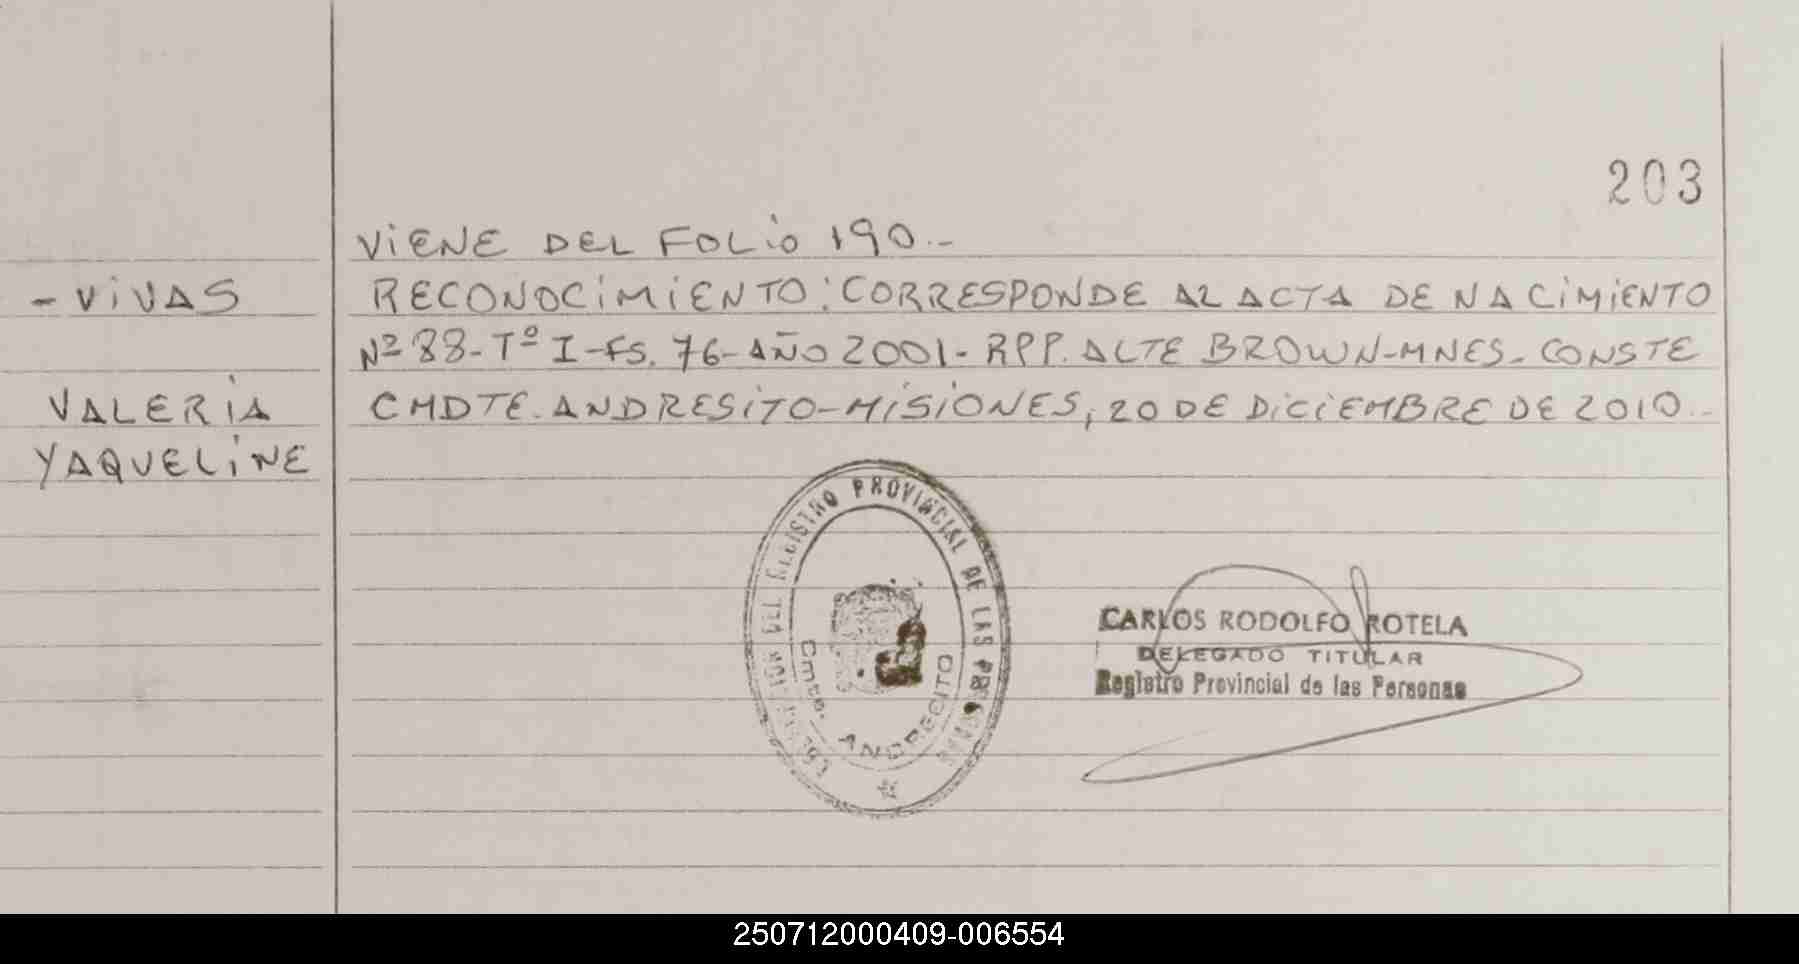 203
VIENE DEL FOLIO 190.-
- VIVAS
VALERIA
YAQUELINE
RECONOCIMIENTO: CORRESPONDE AL ACTA DE NACIMIENTO
Nº 88- Tº I-FS. 76- AÑO 2001- RPP. ALTE BROWN-MNES- CONSTE
CMDTE. ANDRESITO-MISIONES, 20 DE DICIEMBRE DE 2010.-
DEL REGISTRO PROVINCIAL DE LAS
Cmte. ANDRECITO
CARLOS RODOLFO ROTELA
DELEGADO TITULAR
Registro Provincial de las Personas
250712000409-006554